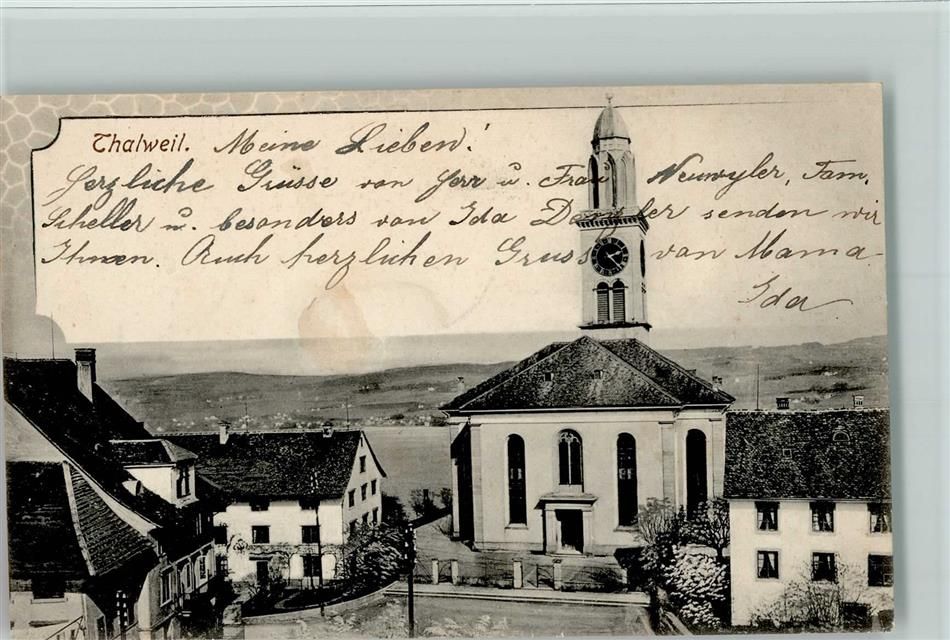 Thalweil. Meine Lieben!
Herzliche Grüsse von Herr u. Frau Neuwyler, Fam.
Scheller u. besonders von Ida senden wir
Ihnen. Auch herzlichen Gruss von Mama
Ida